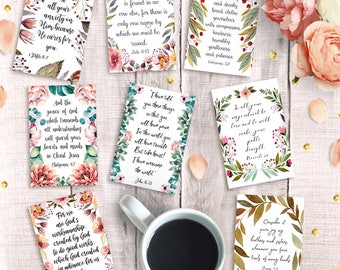 all your
anxiety on
Him because
He cares for
you.
1 Peter 5:7
is found in no
one else, for there is
only one name by
which we must be
saved.
Acts 4:12
and dearly
loved, clothe
yourselves with
compassion,
kindness,
humility,
gentleness,
and patience.
Colossians 3:12
And the
peace of God
which transcends
all understanding
will guard your
hearts and minds
in Christ Jesus
Philippians 4:7
I have told
you these things
in this world
you will have trouble
But take heart!
I have overcome
the world.
John 16:33
In all your
ways submit to
Him and He will
make your
paths
straight.
Proverbs 3:6
For we
are God's
workmanship
created by God
to do good works
which God created
in advance for us
Consider it
pure joy my
brothers and sisters
whenever you face
trials of many
kinds